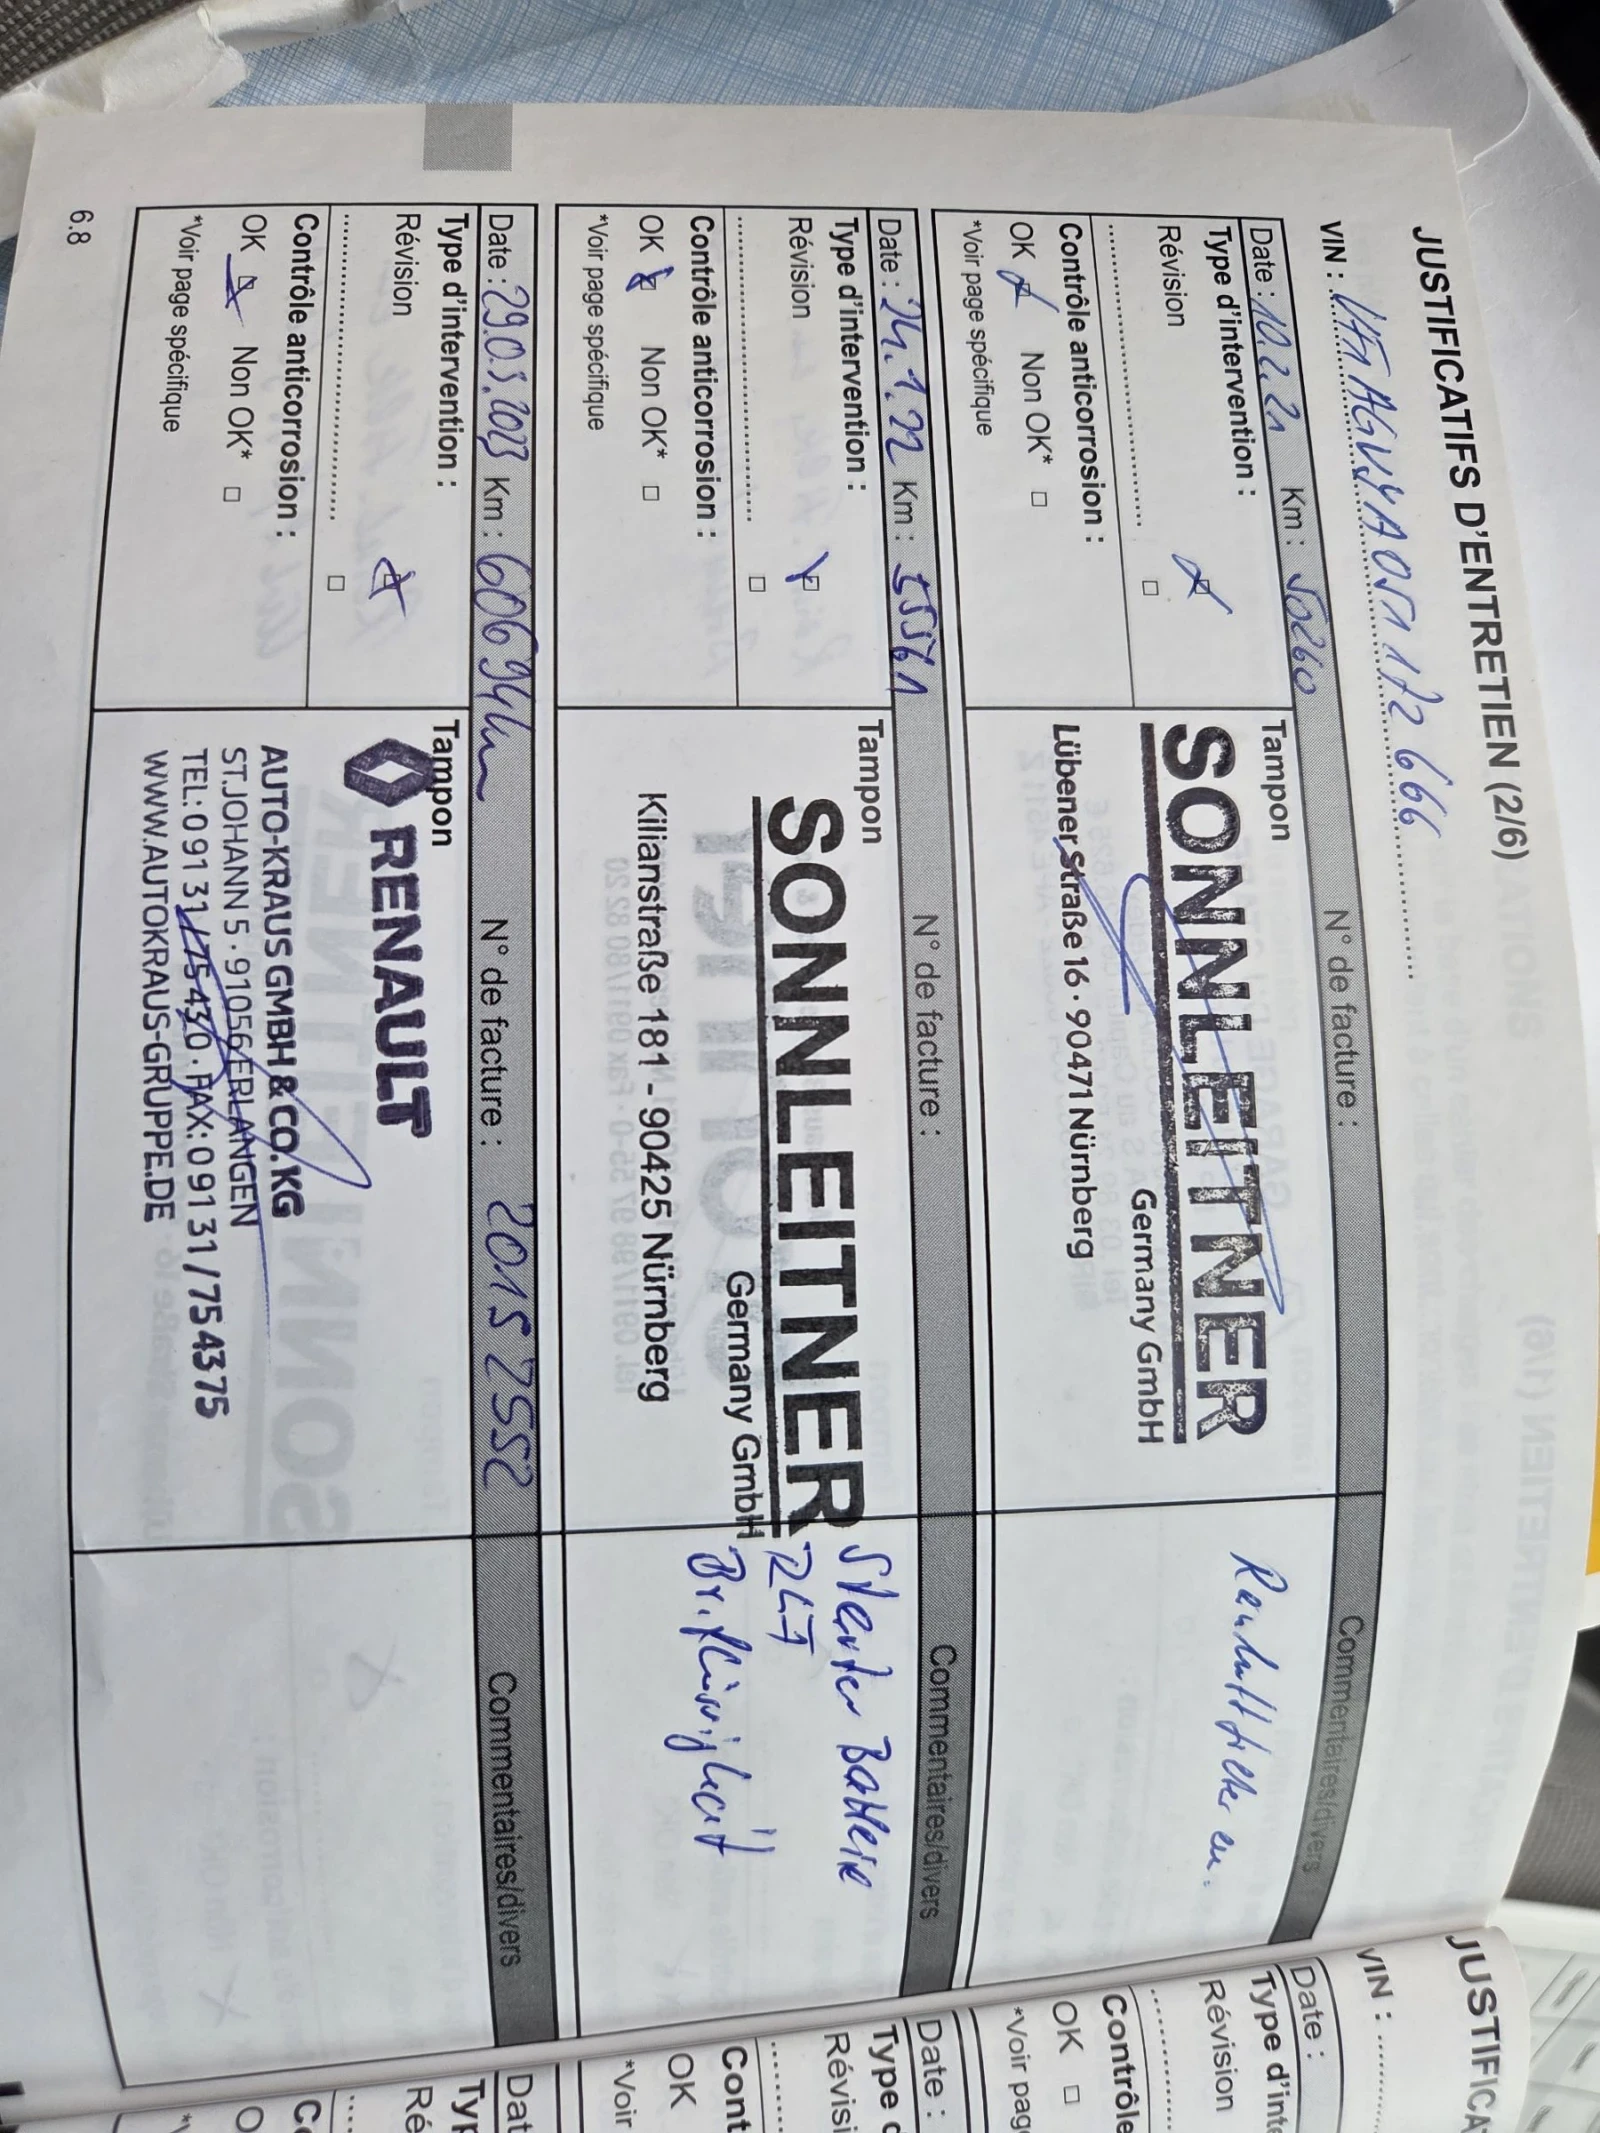 JUSTIFICATIFS D'ENTRETIEN (2/6)
VIN :
Date : 10.2.21 Km : 50260 N° de facture : Commentaires/divers
Type d'intervention :
Révision
Contrôle anticorrosion :
OK Non OK*
*Voir page spécifique
Tampon
SONNLEITNER
Germany GmbH
Lübener Straße 16 · 90471 Nürnberg
Date : 24.1.22 Km : 55561 N° de facture : Commentaires/divers
Type d'intervention :
Révision
Contrôle anticorrosion :
OK Non OK*
*Voir page spécifique
Tampon
SONNLEITNER
Germany GmbH
Kilianstraße 181 - 90425 Nürnberg
Starter Batterie
Br.flüssigkeit
Date : 29.03.2023 Km : 60694km N° de facture : 2015 2552 Commentaires/divers
Type d'intervention :
Révision
Contrôle anticorrosion :
OK Non OK*
*Voir page spécifique
Tampon
RENAULT
AUTO-KRAUS GMBH & CO. KG
ST. JOHANN 5 · 91056 ERLANGEN
TEL: 0 91 31 / 75 43 0 · FAX: 0 91 31 / 75 43 75
WWW.AUTOKRAUS-GRUPPE.DE
6.8
JUSTIFICA
VIN :
Date :
Type d'inte
Révision
Contrôle
OK
*Voir pag
Date :
Type d
Révisi
Cont
OK
*Voir
Dat
Typ
Ré
C
O